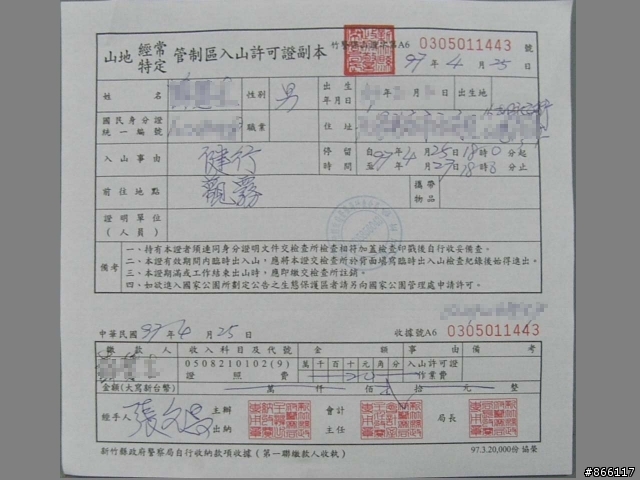 山地 經常 特定 管制區入山許可證副本
A6 0305011443 號
97年4月25日
姓名 性別 男 出生年月日 年 出生地
國民身分證統一編號 職業 住址
入山事由 健行 停留時間 自97年4月25日18時0分起
至 年4月27日18時 分止
前往地點 觀霧 攜帶物品
證明單位(人員)
備考
一、持有本證者須連同身分證明文件交檢查所檢查相符加蓋檢查印戳後自行收妥備查。
二、本證有效期間內臨時出入山,應將本證交檢查所於背面填寫臨時出入山檢查紀錄後始得進出。
三、本證期滿或工作結束出山時,應即繳交檢查所註銷。
四、如欲進入國家公園所劃定公告之生態保護區者請另向國家公園管理處申請許可。
中華民國97年4月25日 收據號A6 0305011443
繳款人 收入科目及代號 金額 事由 備考
0508210102(9) 萬千百十元角分 入山許可證
證照費 作業費
金額(大寫新台幣) 萬 仟 佰 拾 元 整
經手人 主辦出納 會計主任 局長
新竹縣政府警察局自行收納款項收據(第一聯繳款人收執) 97.3.20,000份 協榮
#866117